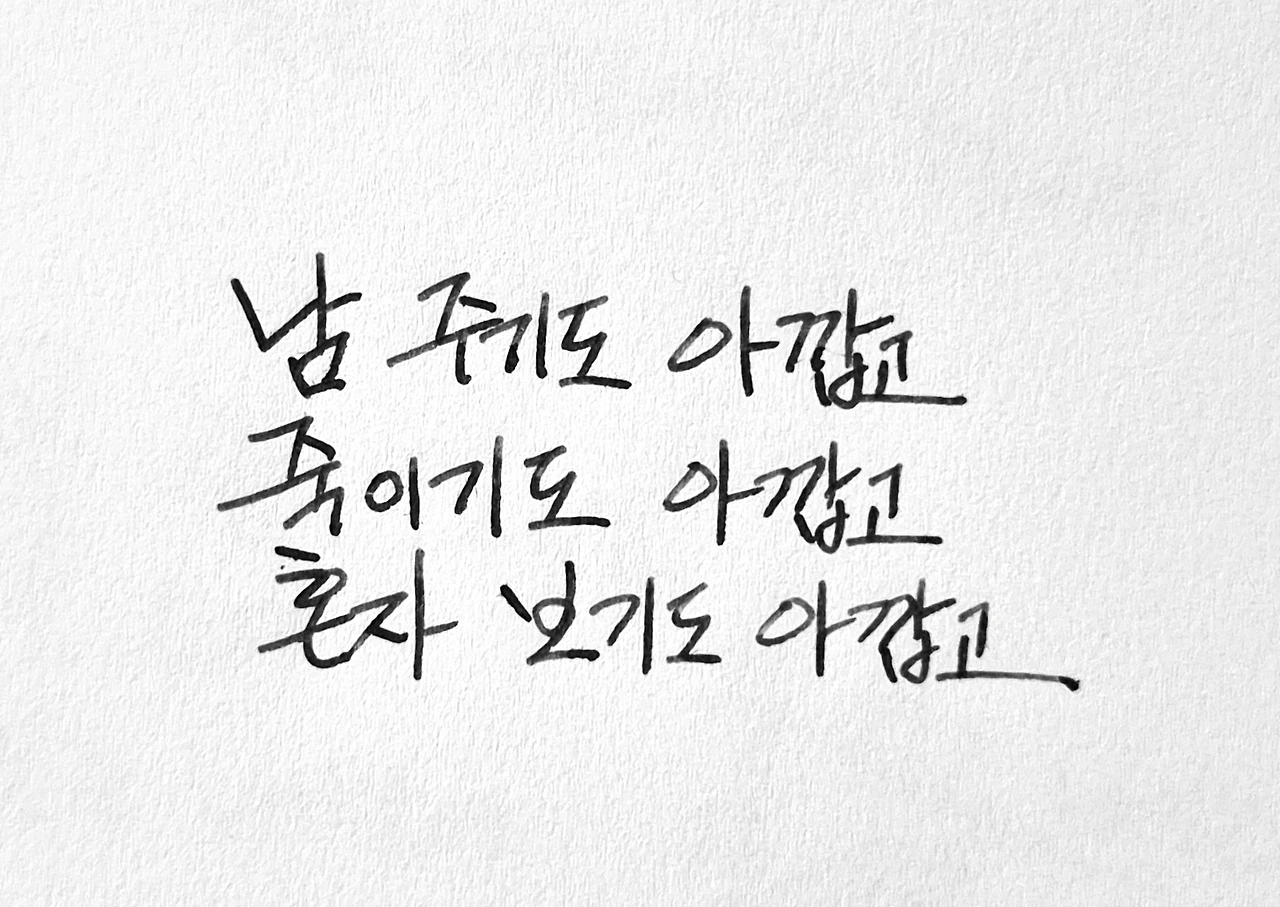 남 주기도 아깝고
죽이기도 아깝고
혼자 보기도 아깝고